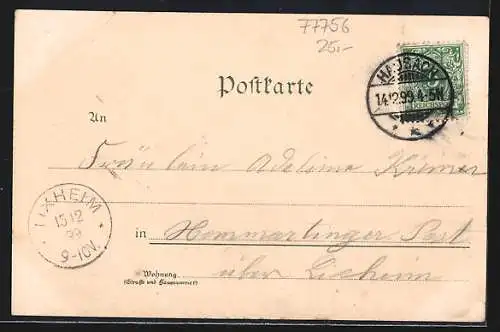 77756
25,-
Postkarte
HAUSACH
14.12.99.4-5N
An
Fräulein Adelina Krämer
LIXHEIM
15 12
99
9-10V.
in Hommartinger Post
Wohnung
(Straße und Hausnummer)
über Lixheim